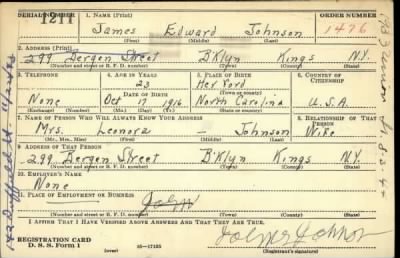 SERIAL NUMBER 1. NAME (Print) ORDER NUMBER
1211 James Edward Johnson 1476
(First) (Middle) (Last)
2. ADDRESS (Print)
299 Bergen Street B'klyn Kings N.Y.
(Number and street or R. F. D. number) (Town) (County) (State)
3. TELEPHONE 4. AGE IN YEARS 5. PLACE OF BIRTH 6. COUNTRY OF CITIZENSHIP
23 Herford
DATE OF BIRTH (Town or county)
None Oct 17 1916 North Carolina U.S.A.
(Exchange) (Number) (Mo.) (Day) (Yr.) (State or country)
7. NAME OF PERSON WHO WILL ALWAYS KNOW YOUR ADDRESS 8. RELATIONSHIP OF THAT PERSON
Mrs. Leonora - Johnson Wife
(Mr., Mrs., Miss) (First) (Middle) (Last)
9. ADDRESS OF THAT PERSON
299 Bergen Street B'klyn Kings N.Y.
(Number and street or R. F. D. number) (Town) (County) (State)
10. EMPLOYER'S NAME
None
11. PLACE OF EMPLOYMENT OR BUSINESS
(Number and street or R. F. D. number) (Town) (County) (State)
I AFFIRM THAT I HAVE VERIFIED ABOVE ANSWERS AND THAT THEY ARE TRUE.
REGISTRATION CARD
D. S. S. Form 1 (over) 16-17105 (Registrant's signature)